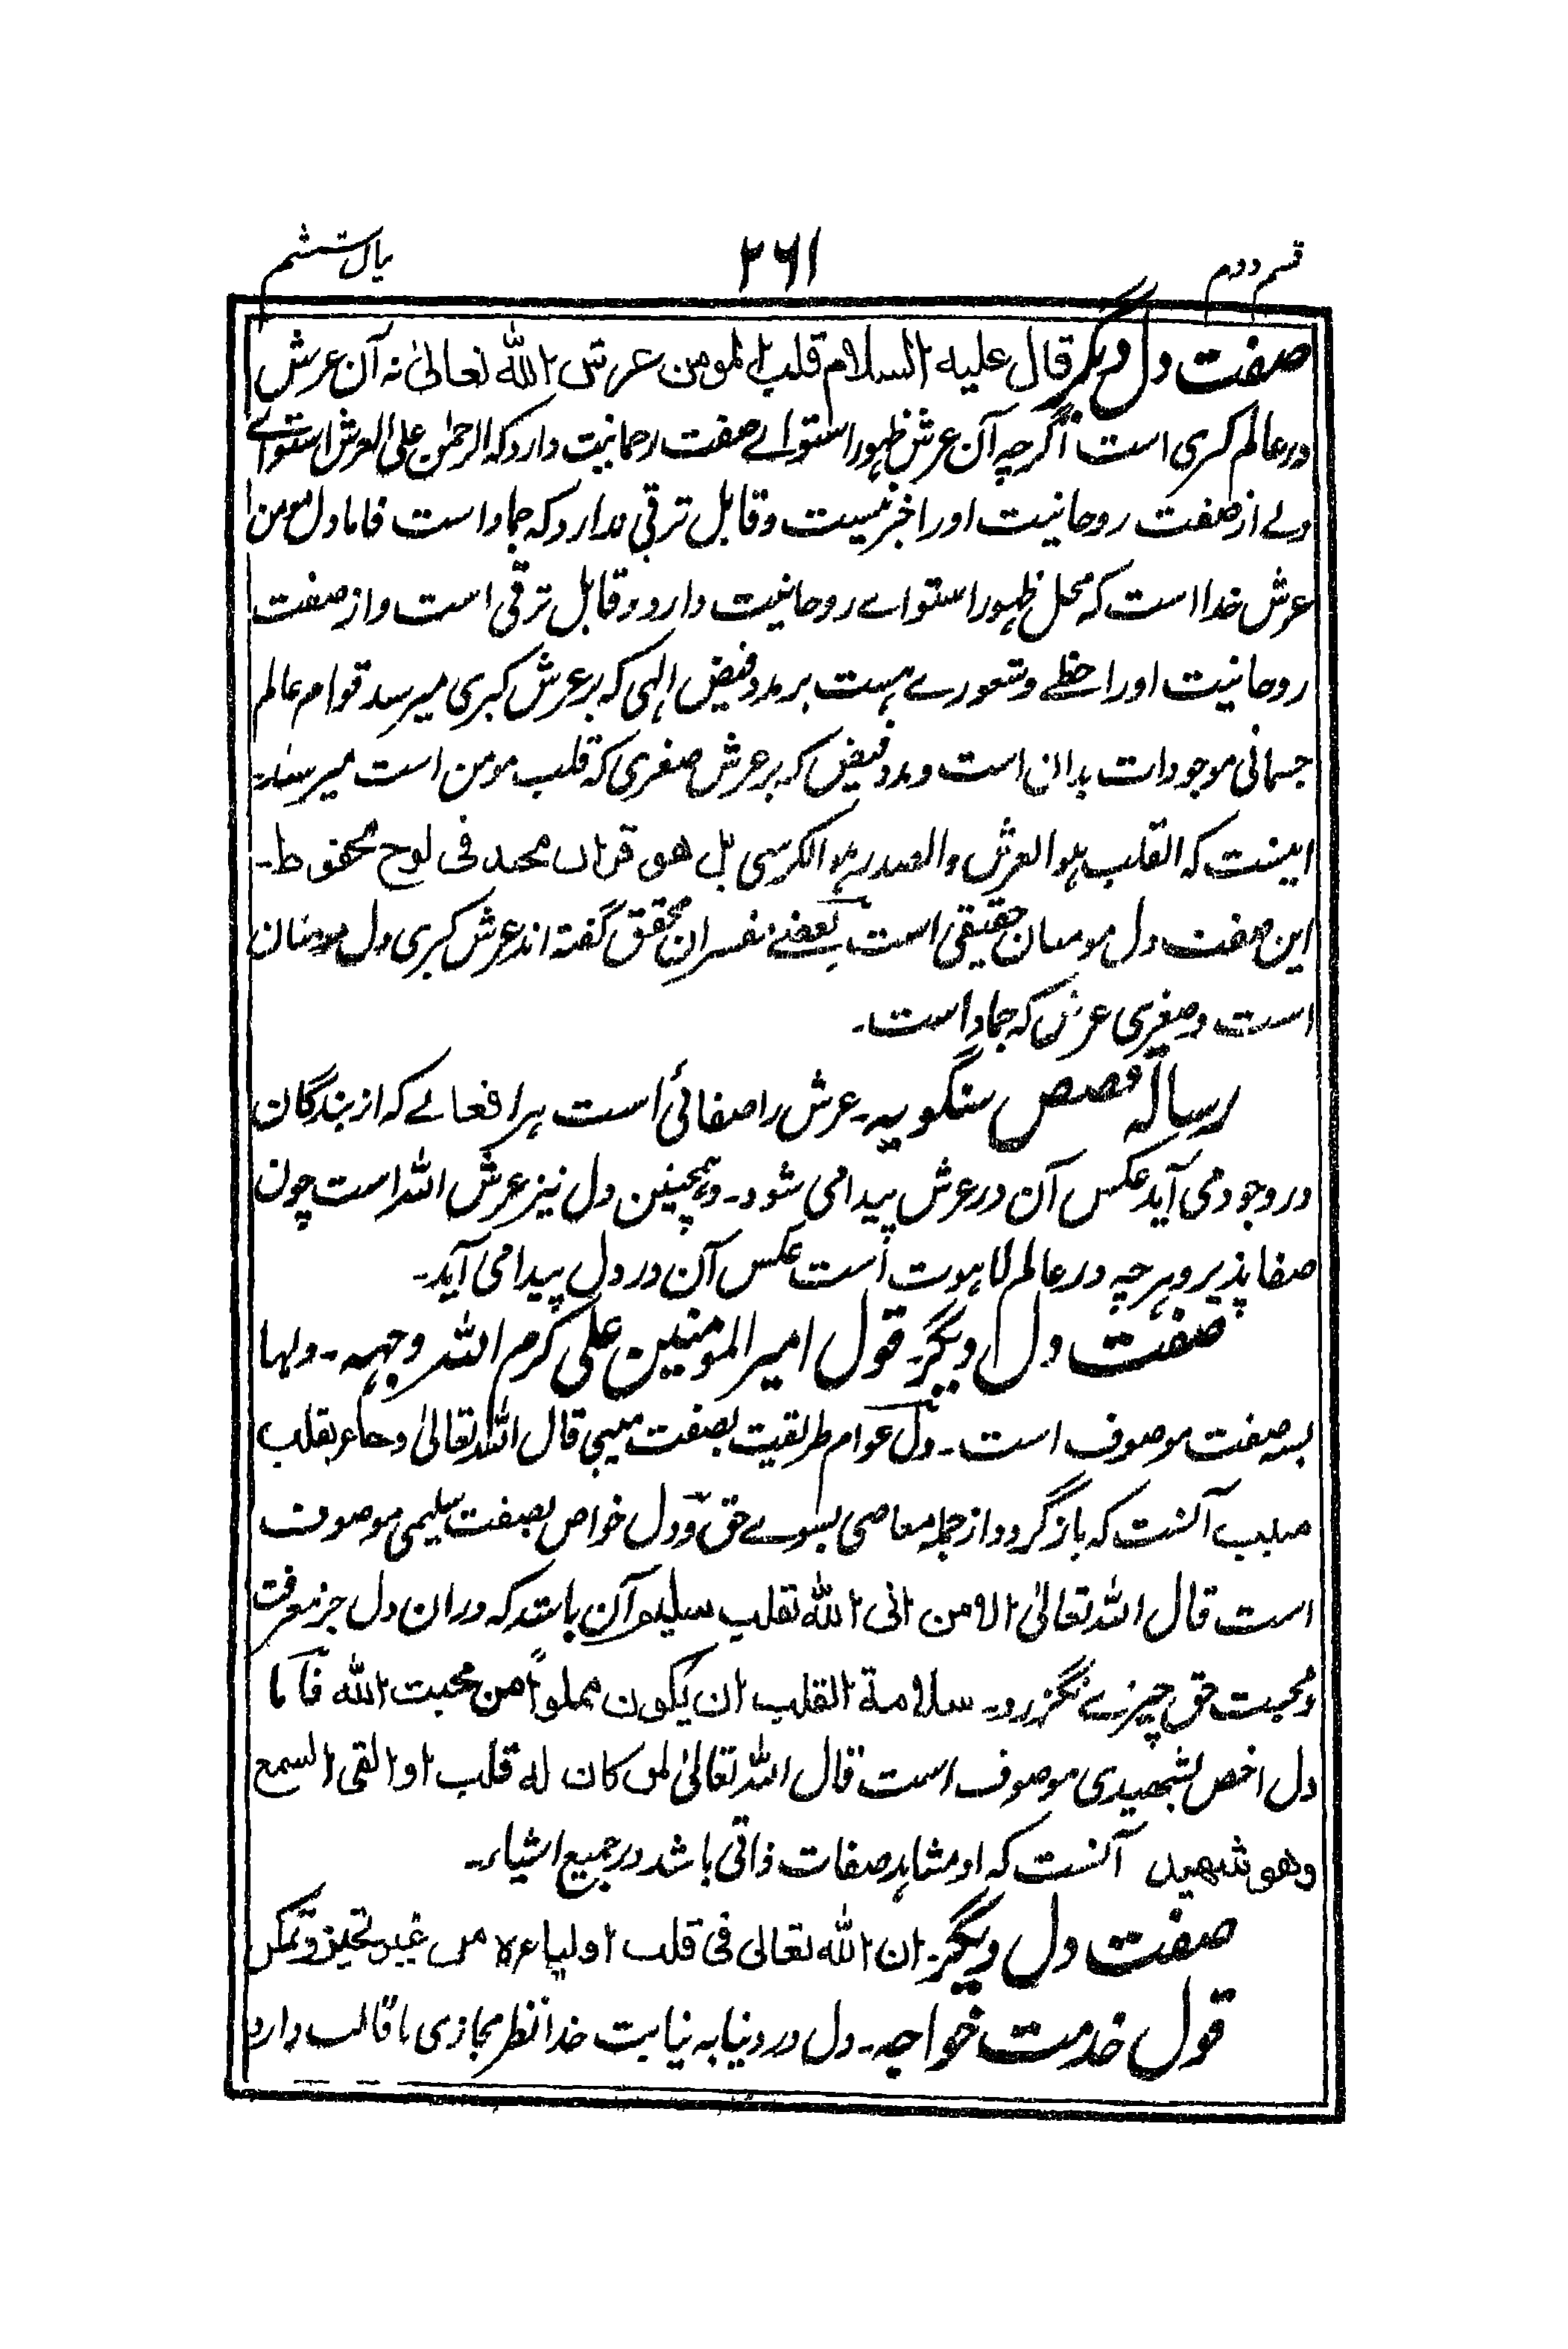 قسم دوم
۲۶۱
باب ششم
صفت دل دیگر قال علیه السلام قلب المومن عرش الله تعالیٰ نه آن عرش
در عالم کبری است اگرچه آن عرش ظهور استوائے صفت رحمانیت دارد که الرحمٰن علی العرش استوٰے
ولے از صفت روحانیت اورا خبر نیست وقابل ترقی ندارد که جماد است فاما دل مومن
عرش خدا است که محل ظهور استوائے روحانیت دارد وقابل ترقی است واز صفت
روحانیت اورا حظے وشعورے هست بر مدد فیض الٰهی که بر عرش کبری میرسد قوام عالم
جسمانی موجودات بدان است ومدد فیض که بر عرش صغری که قلب مومن است میرسد
اینست که القلب هو العرش والصدر هو الکرسی بل هو قران مجید فی لوح محفوظ۔
این صفت دل مومنان حقیقی است بعضے مفسران محقق گفته اند عرش کبری دل مومنان
است وصغری عرش که جماد است۔
رساله قصص سنگویه۔ عرش را صفائی است هر افعالے که از بندگان
در وجود می آید عکس آن در عرش پیدا می شود۔ وهمچنین دل نیز عرش الله است چون
صفا پذیر وهرچه در عالم لاهوت است عکس آن در دل پیدا می آید۔
صفت دل دیگر۔ قول امیر المومنین علی کرم الله وجهه۔ دلها
بسه صفت موصوف است۔ دل عوام طریقت بصفت منیبی قال الله تعالیٰ وجاء بقلب
منیب آنست که باز گردد از جمله معاصی بسوے حق ودل خواص بصفت سلیمی موصوف
است قال الله تعالیٰ الا من اتی الله بقلب سلیم آن باشد که در ان دل جز معرفت
ومحبت حق چیزے نگزرد۔ سلامة القلب ان یکون مملواً من محبت الله فاما
دل اخص بشهیدی موصوف است قال الله تعالیٰ لمن کان له قلب او القی السمع
وهو شهید آنست که او مشاهد صفات ذاتی باشد در جمیع اشیاء۔
صفت دل دیگر۔ ان الله تعالی فی قلب اولیاءه من غیر تحیز وتمکن
قول خدمت خواجه۔ دل در دنیا به نیابت خدا نظر مجازی با قالب دارد